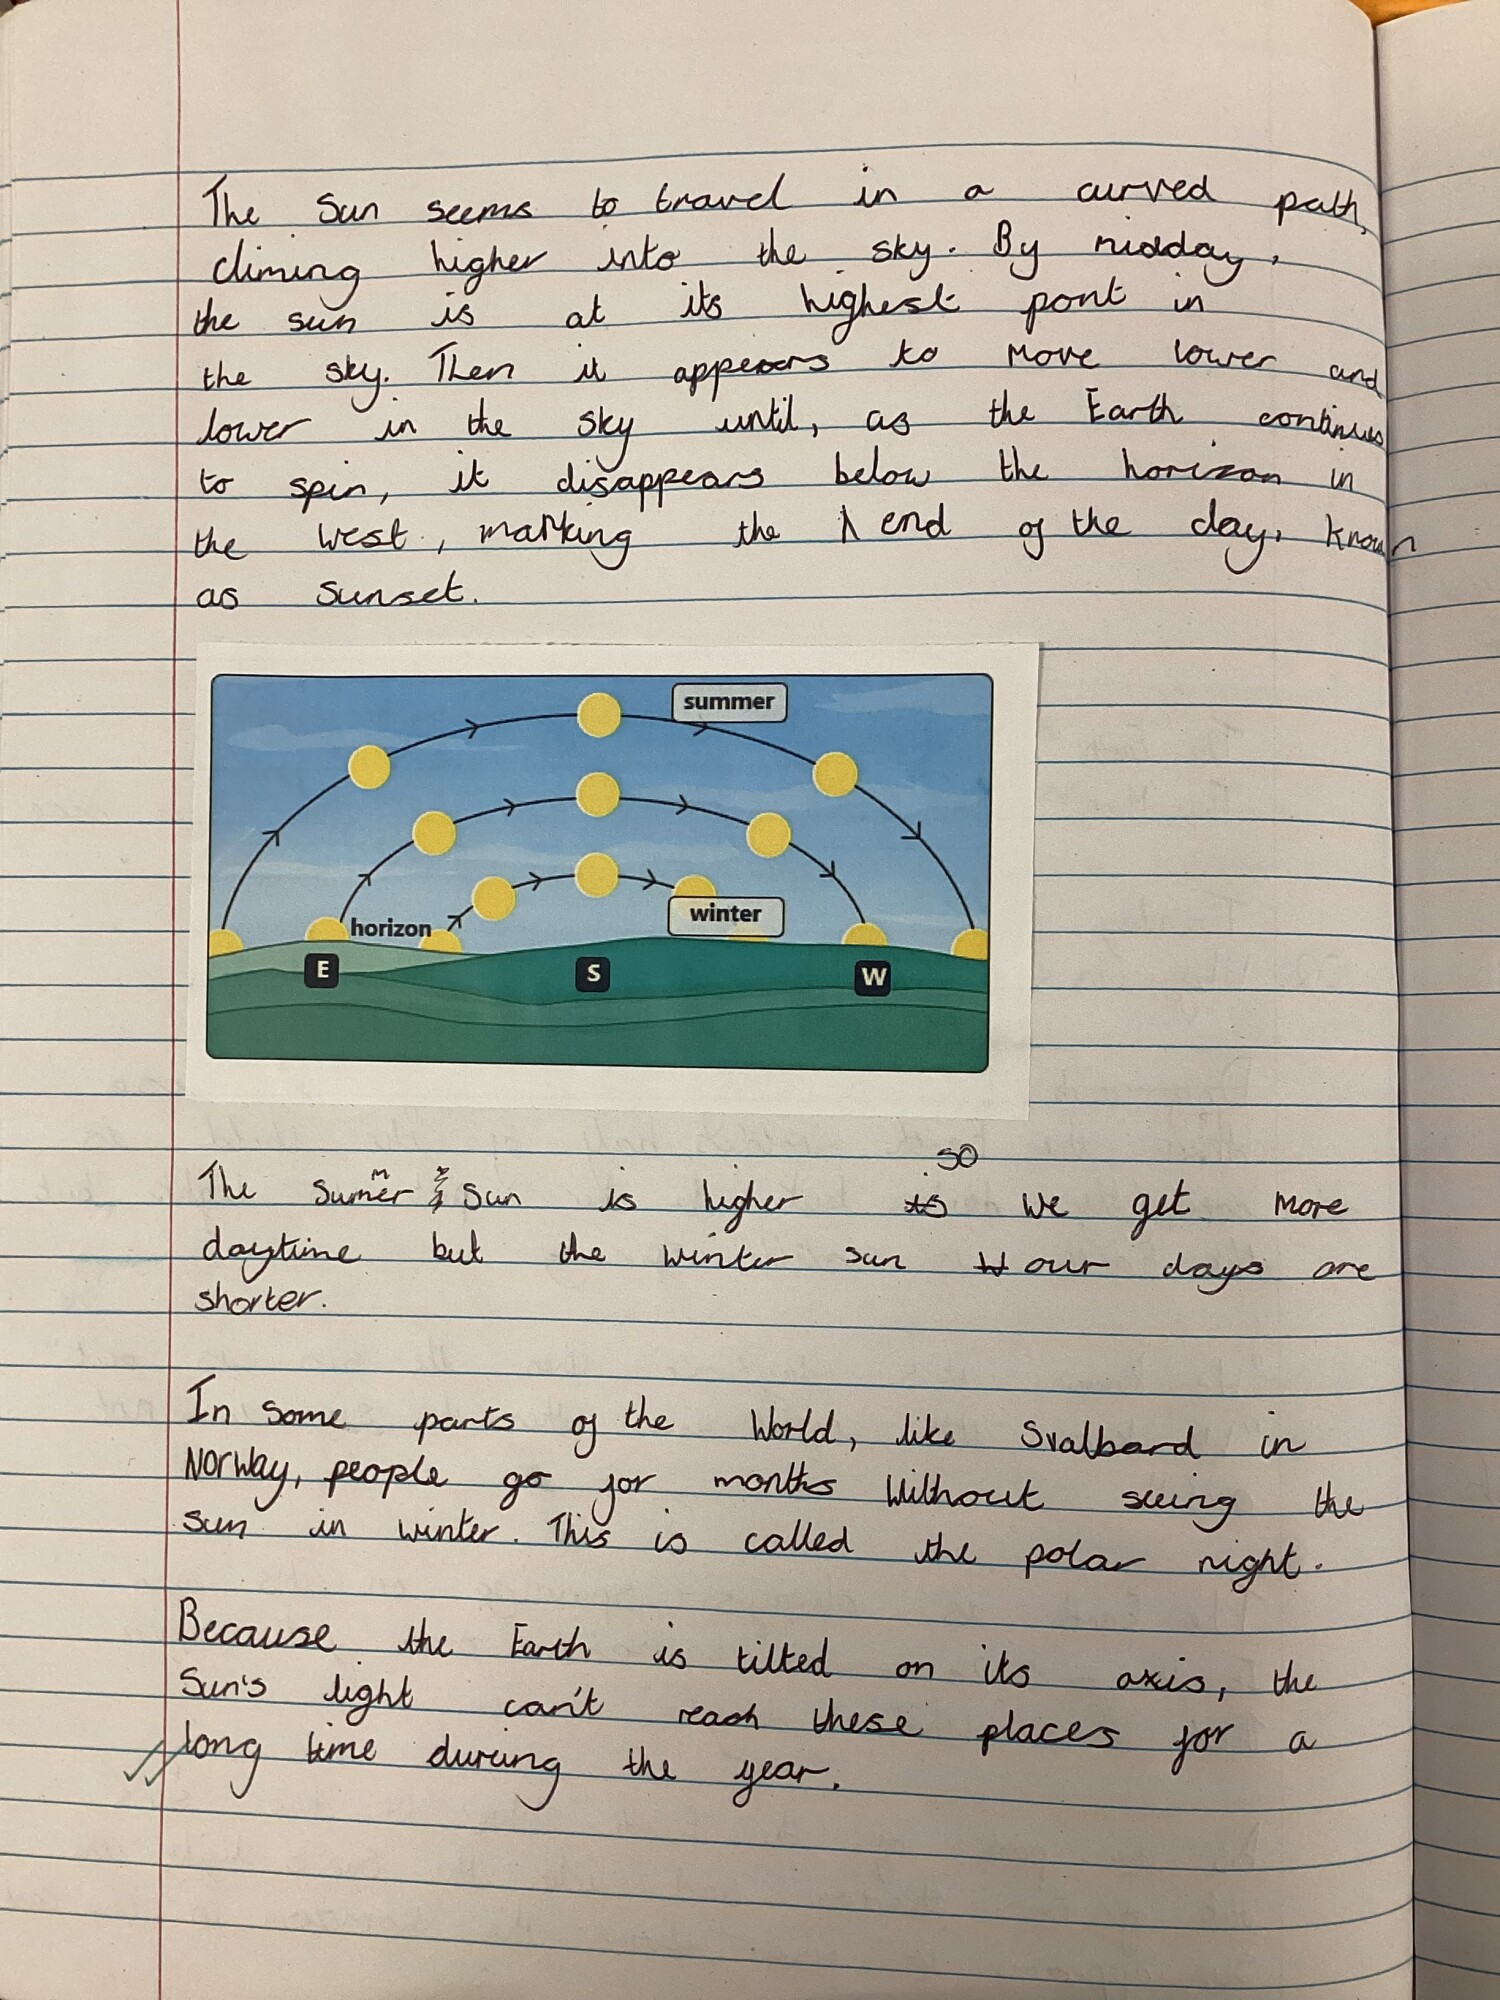 The Sun seems to travel in a curved path,
climing higher into the sky. By midday,
the sun is at its highest pont in
the sky. Then it appears to move lower and
lower in the sky until, as the Earth continues
to spin, it disappears below the horizon in
the west, marking the end of the day, known
as sunset.
summer
horizon
winter
E S W
so
The summer sun is higher we get more
daytime but the winter sun our days are
shorter.
In some parts of the World, like Svalbard in
Norway, people go for months without seeing the
sun in winter. This is called the polar night.
Because the Earth is tilted on its axis, the
Sun's light can't reach these places for a
long time during the year.